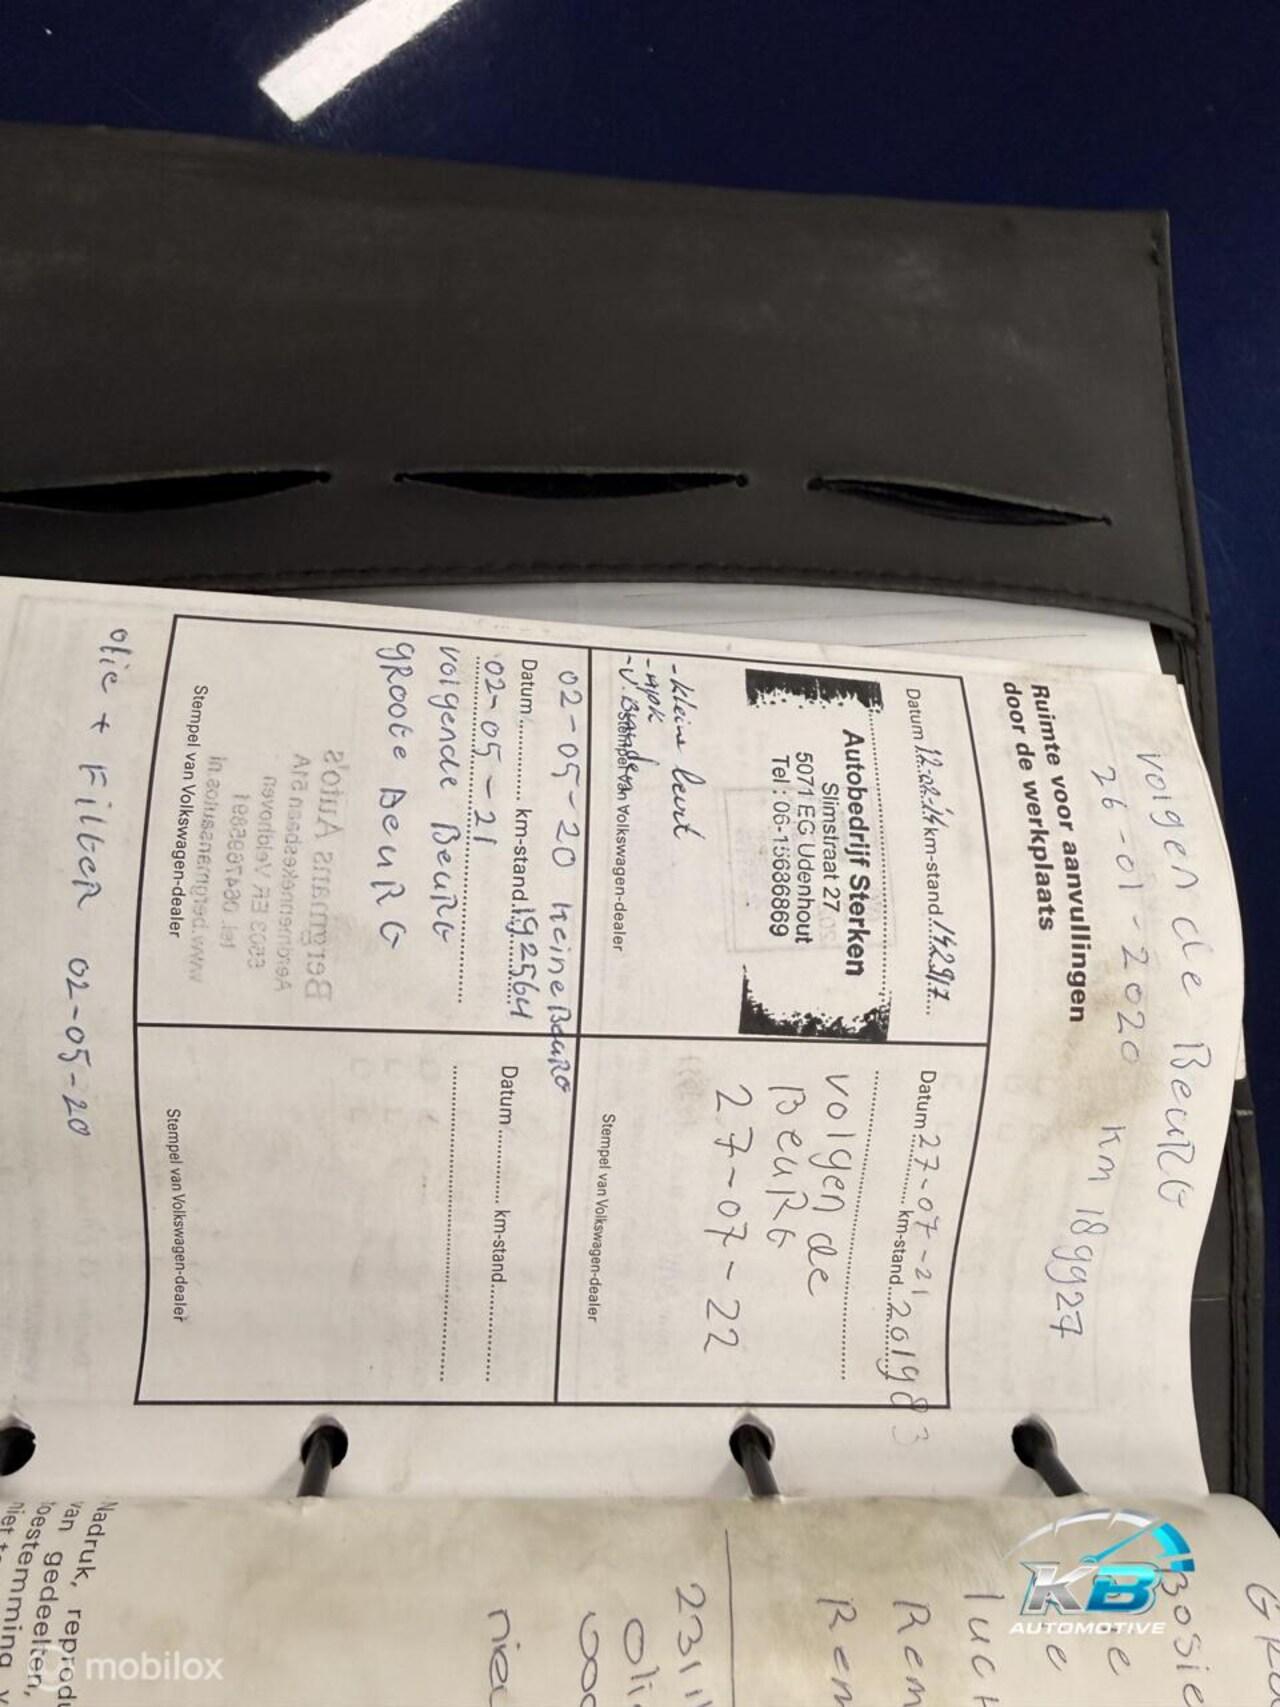 volgende BeuRG
26-01-2020 km 189927
Ruimte voor aanvullingen
door de werkplaats
Datum 12.02.14 km-stand 142917
Autobedrijf Sterken
Slimstraat 27
5071 EG Udenhout
Tel : 06-15636869
- kleine beurt
- APK
Stempel van Volkswagen-dealer
Datum 27-07-21 km-stand 201983
volgende
BeuRG
27-07-22
Stempel van Volkswagen-dealer
02-05-20 kleine BeuRG
Datum km-stand 192564
02-05-21
volgende BeuRG
GROOTE BeuRG
Stempel van Volkswagen-dealer
Datum km-stand
Stempel van Volkswagen-dealer
olie + FilteR 02-05-20
Rem
Rem
Nadruk,
van gedeelten,
KB
AUTOMOTIVE
mobilox